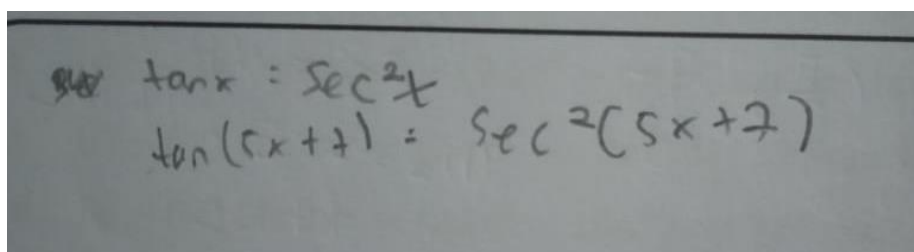 tanx = Sec²x
tan(5x+7) = Sec²(5x+7)